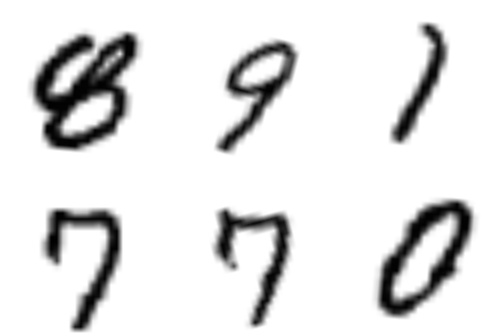 8 9 1
7 7 0